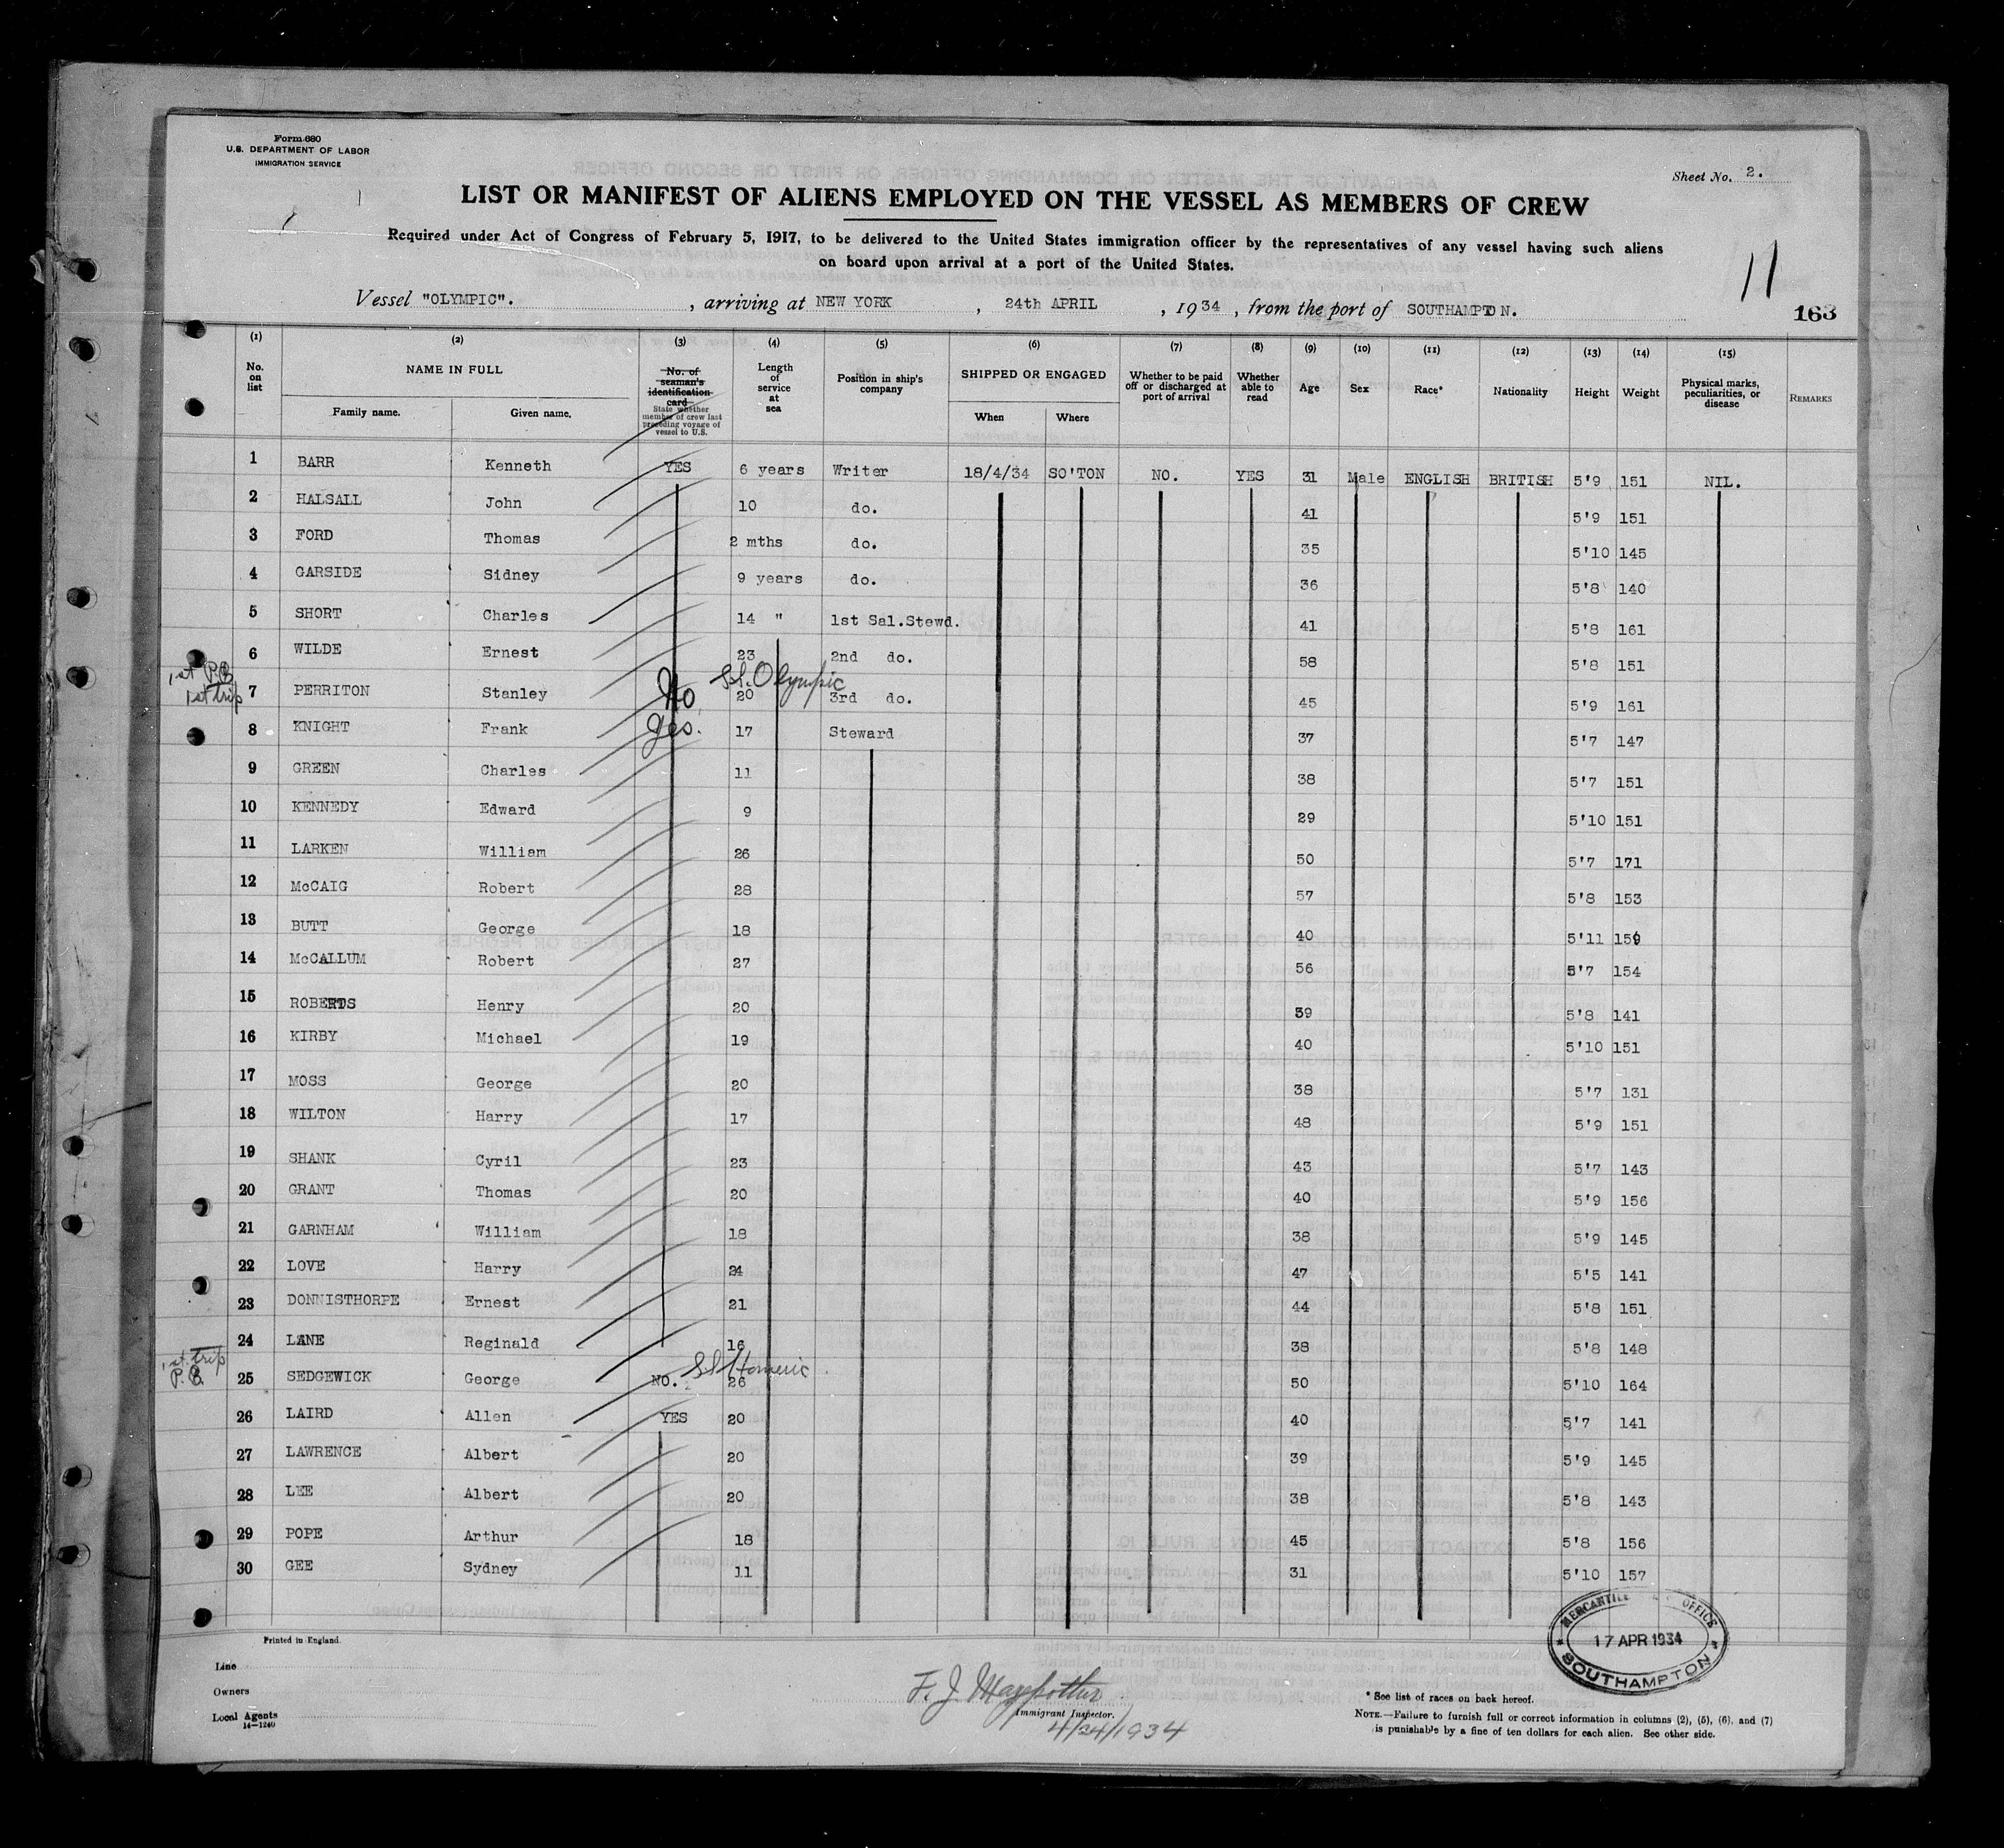 Form 680
U.S. DEPARTMENT OF LABOR
IMMIGRATION SERVICE
Sheet No. 2.
LIST OR MANIFEST OF ALIENS EMPLOYED ON THE VESSEL AS MEMBERS OF CREW
Required under Act of Congress of February 5, 1917, to be delivered to the United States immigration officer by the representatives of any vessel having such aliens
on board upon arrival at a port of the United States.
11
Vessel "OLYMPIC". , arriving at NEW YORK , 24th APRIL , 1934 , from the port of SOUTHAMPTON.
163
(1) (2) (3) (4) (5) (6) (7) (8) (9) (10) (11) (12) (13) (14) (15)
No. on list NAME IN FULL Family name. Given name. No. of seaman's identification card State whether member of crew last preceding voyage of vessel to U.S. Length of service at sea Position in ship's company SHIPPED OR ENGAGED When Where Whether to be paid off or discharged at port of arrival Whether able to read Age Sex Race* Nationality Height Weight Physical marks, peculiarities, or disease REMARKS
1 BARR Kenneth YES 6 years Writer 18/4/34 SO'TON NO. YES 31 Male ENGLISH BRITISH 5'9 151 NIL.
2 HALSALL John 10 do. 41 5'9 151
3 FORD Thomas 2 mths do. 35 5'10 145
4 GARSIDE Sidney 9 years do. 36 5'8 140
5 SHORT Charles 14 " 1st Sal.Stewd. 41 5'8 161
6 WILDE Ernest 23 2nd do. 58 5'8 151
1st trip 7 PERRITON Stanley No S.S. Olympic 20 3rd do. 45 5'9 161
8 KNIGHT Frank Yes. 17 Steward 37 5'7 147
9 GREEN Charles 11 38 5'7 151
10 KENNEDY Edward 9 29 5'10 151
11 LARKEN William 26 50 5'7 171
12 McCAIG Robert 28 57 5'8 153
13 BUTT George 18 40 5'11 159
14 McCALLUM Robert 27 56 5'7 154
15 ROBERTS Henry 20 39 5'8 141
16 KIRBY Michael 19 40 5'10 151
17 MOSS George 20 38 5'7 131
18 WILTON Harry 17 48 5'9 151
19 SHANK Cyril 23 43 5'7 143
20 GRANT Thomas 20 40 5'9 156
21 GARNHAM William 18 38 5'9 145
22 LOVE Harry 24 47 5'5 141
23 DONNISTHORPE Ernest 21 44 5'8 151
24 LANE Reginald 16 38 5'8 148
1st trip 25 SEDGEWICK George NO. SS Homeric 26 50 5'10 164
26 LAIRD Allen YES 20 40 5'7 141
27 LAWRENCE Albert 20 39 5'9 145
28 LEE Albert 20 38 5'8 143
29 POPE Arthur 18 45 5'8 156
30 GEE Sydney 11 31 5'10 157
Printed in England.
MERCANTILE OFFICE
17 APR 1934
SOUTHAMPTON
Line
Owners
Local Agents
14—1240
F. J.
Immigrant Inspector.
4/24/1934
* See list of races on back hereof.
NOTE.—Failure to furnish full or correct information in columns (2), (5), (6), and (7)
is punishable by a fine of ten dollars for each alien. See other side.